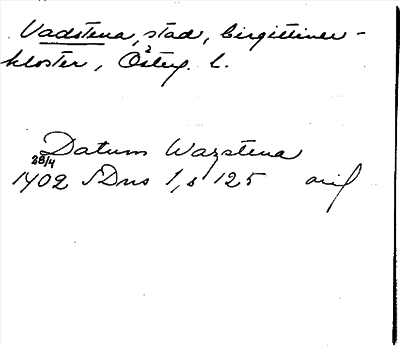 Vadstena, stad, birgittiner-
kloster, Österg. l.
Datum Wazstena
28/4
1402 SDns 1, s 125 orig